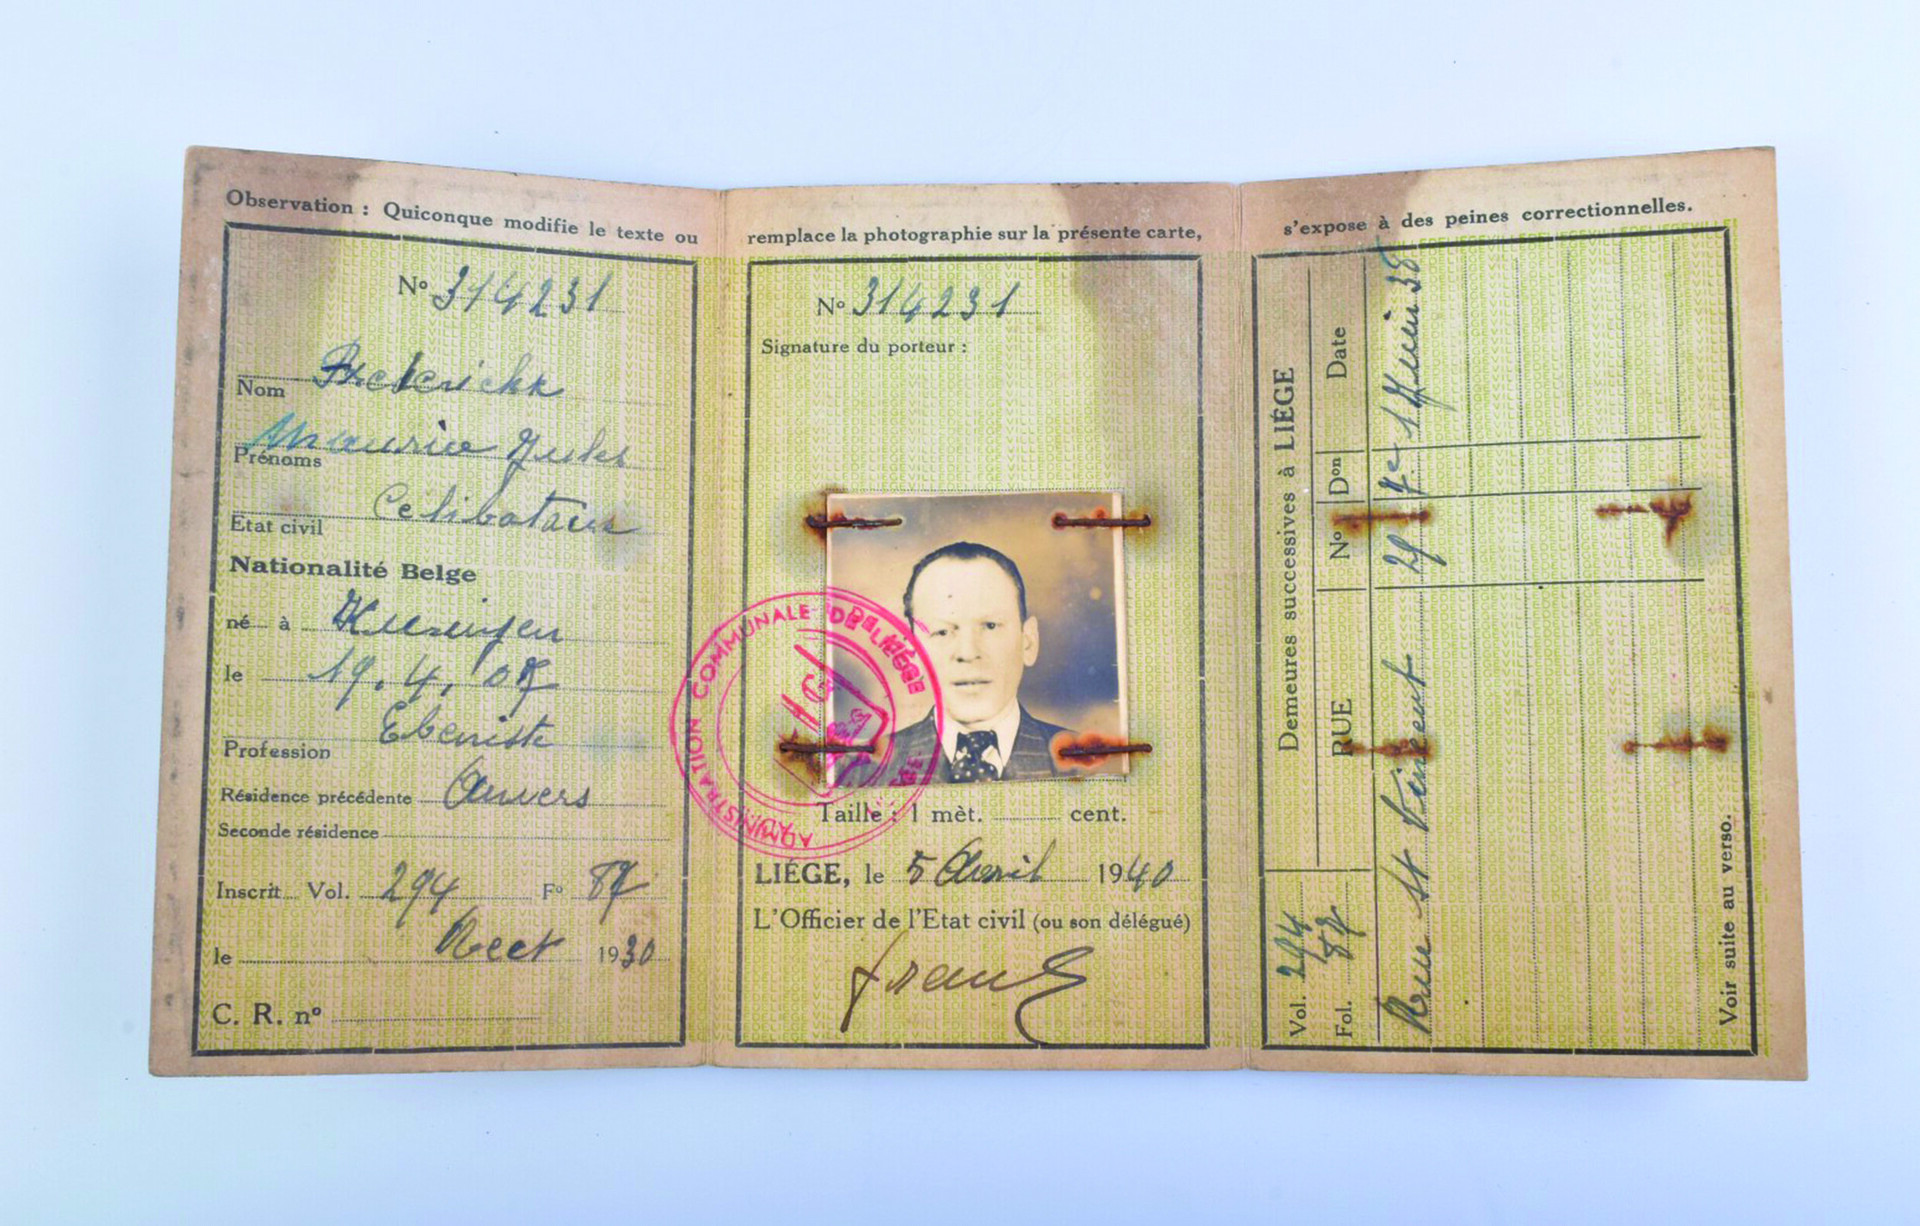 Observation : Quiconque modifie le texte ou
remplace la photographie sur la présente carte,
s'expose à des peines correctionnelles.
No 314231
Nom
Maurice Jules
Prénoms
Célibataire
Etat civil
Nationalité Belge
né à
le 19.4.07
Ebeniste
Profession
Résidence précédente Anvers
Seconde résidence
Inscrit Vol. 294 Fo 87
le Rect 1930
C. R. no
No 314231
Signature du porteur :
ADMINISTRATION COMMUNALE DE LIÉGE
Taille : 1 mèt. cent.
LIÉGE, le 5 Avril 1940
L'Officier de l'Etat civil (ou son délégué)
Demeures successives à LIÉGE
Vol. 294
Fol. 87
RUE No Don Date
Rue St Vincent 29 1 Juin 38
Voir suite au verso.